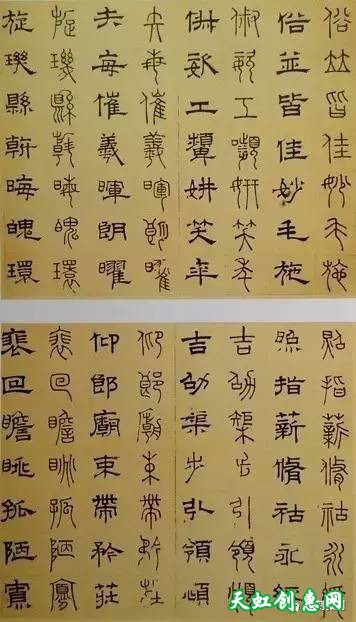 俗竝皆佳妙毛施
俗並皆佳妙毛施
俶姿工嚬妍笑年
俶姿工顰妍笑年
矢每催羲暉朗曜
矢每催羲暉朗曜
旋璣縣斡晦魄環
旋璣縣斡晦魄環
照指薪脩祜永綏
照指薪脩祜永綏
吉劭榘步引領頫
吉劭榘步引領頫
仰郎廟束帶矜莊
仰郎廟束帶矜莊
裵回瞻眺孤陋寡
裵回瞻眺孤陋寡
天虹创意网